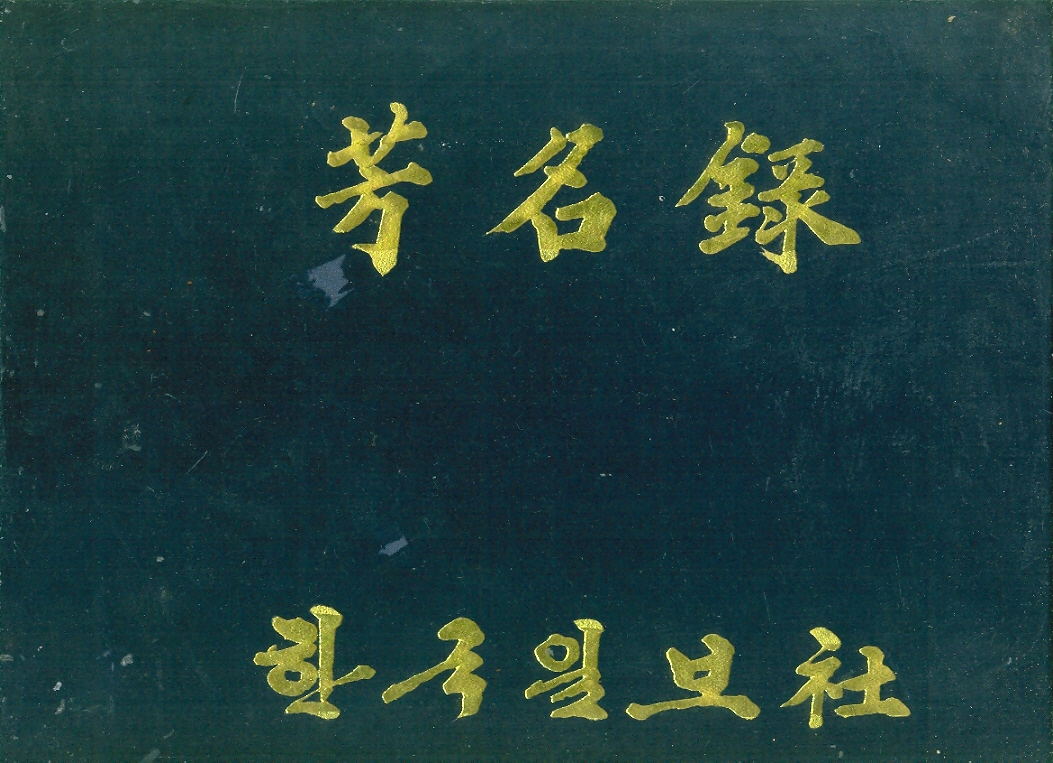 芳名録
한국일보社